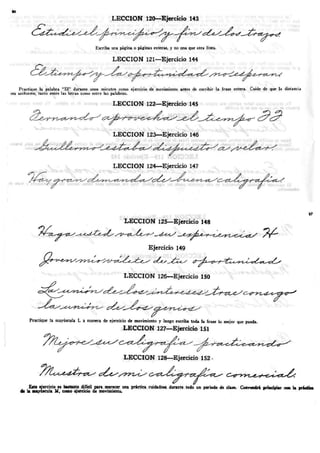 86
LECCION 120—Ejercicio 143
Estudie el principio y fin de los trazos
Escriba una página o páginas enteras, y no una que otra línea.
LECCION 121—Ejercicio 144
El tiempo y la oportunidad no esperan
Practique la palabra "El" durante unos minutos como ejercicio de movimiento antes de escribir la frase entera. Cuide de que la distancia
sea uniforme, tanto entre las letras como entre las palabras.
LECCION 122—Ejercicio 145
Fernando aprovecha el tiempo
LECCION 123—Ejercicio 146
Guillermo estaba dispuesto a velar
LECCION 124—Ejercicio 147
Hay gran demanda de buena caligrafía
87
LECCION 125—Ejercicio 148
Haga usted valer su experiencia H
Ejercicio 149
Joven mío válete de tu oportunidad
LECCION 126—Ejercicio 150
La unión de los intereses trae consigo
la unión de los genios
Practique la mayúscula L a manera de ejercicio de movimiento y luego escriba toda la frase lo mejor que pueda.
LECCION 127—Ejercicio 151
Mejore su caligrafía practicando
LECCION 128—Ejercicio 152
Muestra de mi caligrafía comercial
Este ejercicio es bastante difícil para merecer una práctica cuidadosa durante todo un período de clase. Convendrá principiar con la práctica
de la mayúscula M, como ejercicio de movimiento.